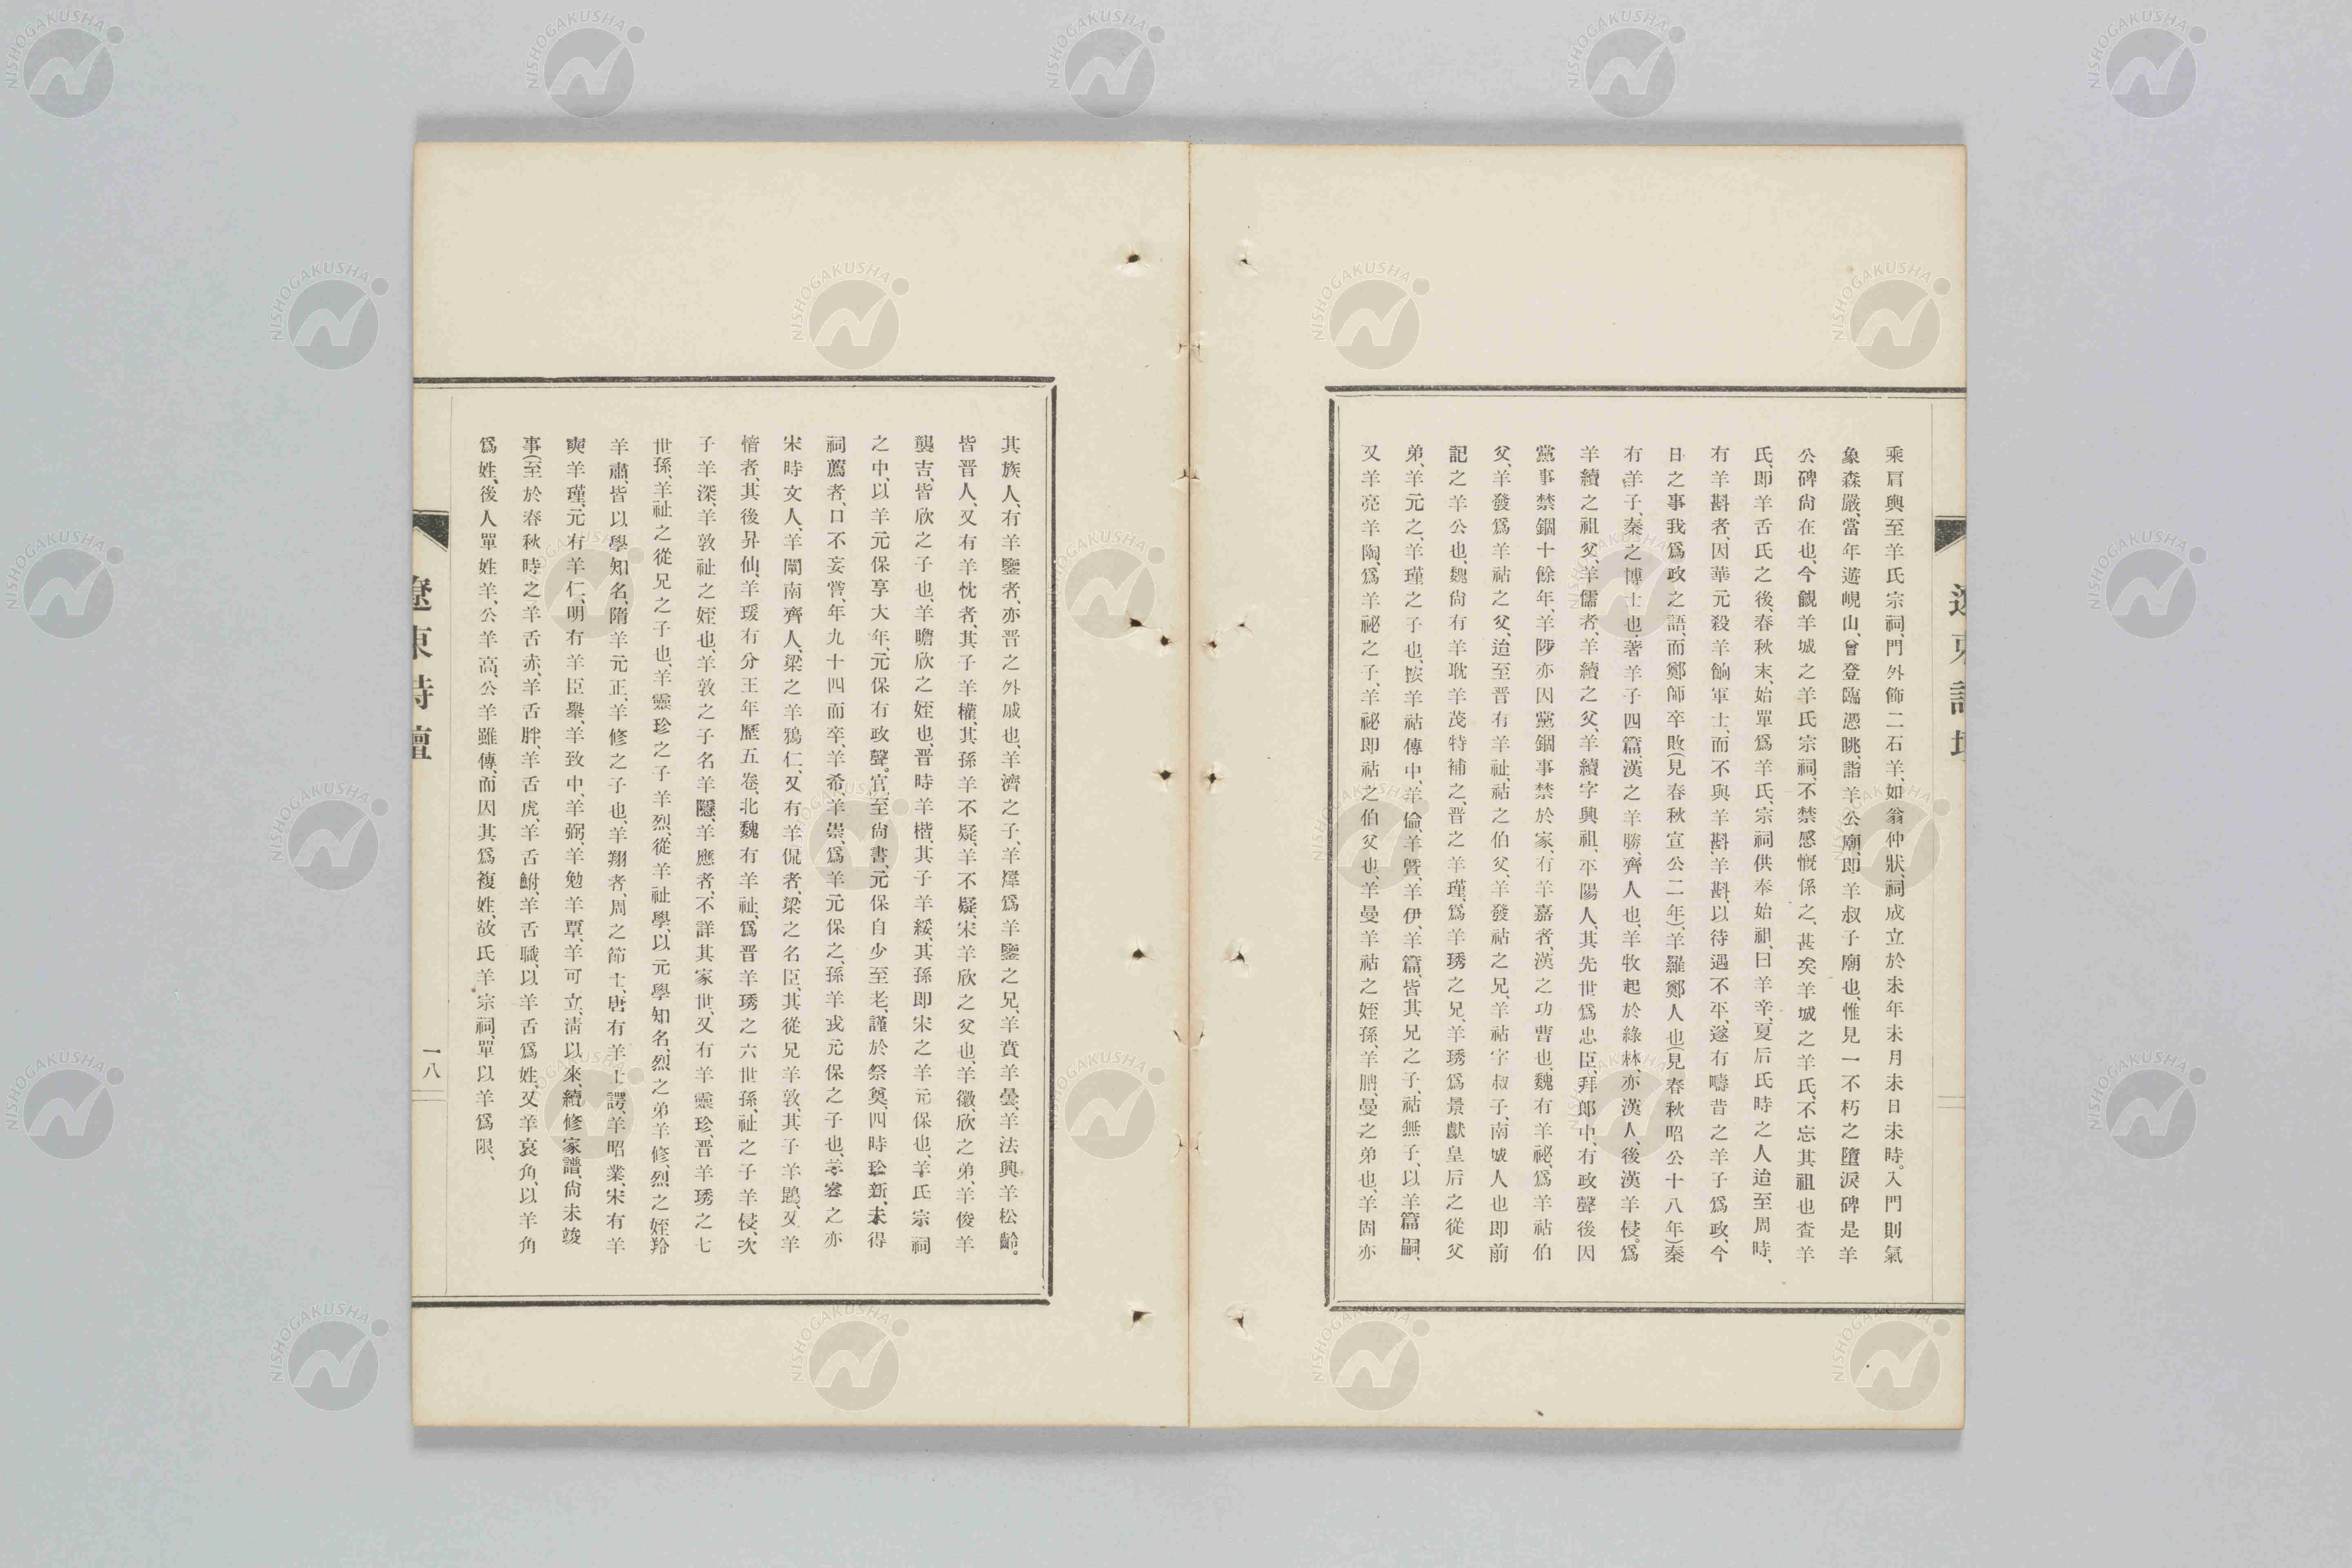 乘肩輿至羊氏宗祠、門外飾二石羊、如翁仲狀、祠成立於未年未月未日未時。入門則氣
象森嚴、當年遊峴山、曾登臨憑眺、詣羊公廟、即羊叔子廟也、惟見一不朽之墮淚碑是羊
公碑尙在也、今覩羊城之羊氏宗祠、不禁感慨係之、甚矣羊城之羊氏、不忘其祖也査羊
氏、即羊舌氏之後、春秋末、始單爲羊氏、宗祠供奉始祖、曰羊辛、夏后氏時之人迨至周時、
有羊斟者、因華元殺羊餉軍士、而不與羊斟、羊斟、以待遇不平、遂有疇昔之羊子爲政、今
日之事我爲政之語、而鄭師卒敗(見春秋宣公二年)、羊羅鄭人也(見春秋昭公十八年)秦
有羊子、秦之博士也、著羊子四篇、漢之羊勝、齊人也、羊牧起於綠林、亦漢人、後漢羊侵。爲
羊續之祖父、羊儒者、羊續之父、羊續字興祖、平陽人、其先世爲忠臣、拜郎中、有政聲後因
黨事禁錮十餘年、羊陟亦因黨錮事禁於家、有羊嘉者、漢之功曹也、魏有羊祕、爲羊祜伯
父、羊發爲羊祜之父、迨至晋有羊祉、祜之伯父、羊發祜之兄、羊祜字叔子、南城人也即前
記之羊公也、魏尙有羊耽羊茂特補之、晋之羊瑾、爲羊琇之兄、羊琇爲景獻皇后之從父
弟、羊元之、羊瑾之子也、按羊祜傳中、羊倫、羊曁、羊伊、羊篇、皆其兄之子、祜無子、以羊篇嗣、
又羊亮羊陶、爲羊祕之子、羊祕即祜之伯父也、羊曼羊祜之姪孫、羊聃、曼之弟也、羊固亦
遼東詩壇
其族人、有羊鑒者、亦晋之外戚也、羊濟之子、羊燁爲羊鑒之兄、羊賁羊曇、羊法興羊松齡。
皆晋人、又有羊忱者、其子羊權、其孫羊不疑、羊不疑、宋羊欣之父也、羊徽、欣之弟、羊俊羊
龔吉、皆欣之子也、羊瞻欣之姪也、晋時羊楷、其子羊綏、其孫即宋之羊元保也、羊氏宗祠
之中、以羊元保享大年、元保有政聲。官至尙書、元保自少至老、謹於祭奠、四時珍新、未得
祠薦者、口不妄嘗、年九十四而卒、羊希、羊崇、爲羊元保之、孫羊戎元保之子也、羊睿之亦
宋時文人、羊闡南齊人、梁之羊鴉仁、又有羊侃者、梁之名臣、其從兄羊敦、其子羊鶤、又羊
愔者、其後昇仙、羊瑗有分王年歷五卷、北魏有羊祉、爲晋羊琇之六世孫、祉之子羊侵、次
子羊深、羊敦祉之姪也、羊敦之子名羊隱、羊應者、不詳其家世、又有羊靈珍、晋羊琇之七
世孫、羊祉之從兄之子也、羊靈珍之子羊烈、從羊祉學、以元學知名、烈之弟羊修、烈之姪羚
羊肅、皆以學知名、隋羊元正、羊修之子也、羊翔者、周之節士、唐有羊士諤、羊昭業、宋有羊
奭羊瑾、元有羊仁、明有羊臣擧、羊致中、羊弼、羊勉羊覃、羊可立、淸以來、續修家譜、尙未竣
事(至於春秋時之羊舌赤、羊舌肸、羊舌虎、羊舌鮒、羊舌職、以羊舌爲姓、又羊哀角、以羊角
爲姓、後人單姓羊、公羊高、公羊雖傳、而因其爲複姓、故氏羊宗祠、單以羊爲限、
遼東詩壇
一八
NISHOGAKUSHA